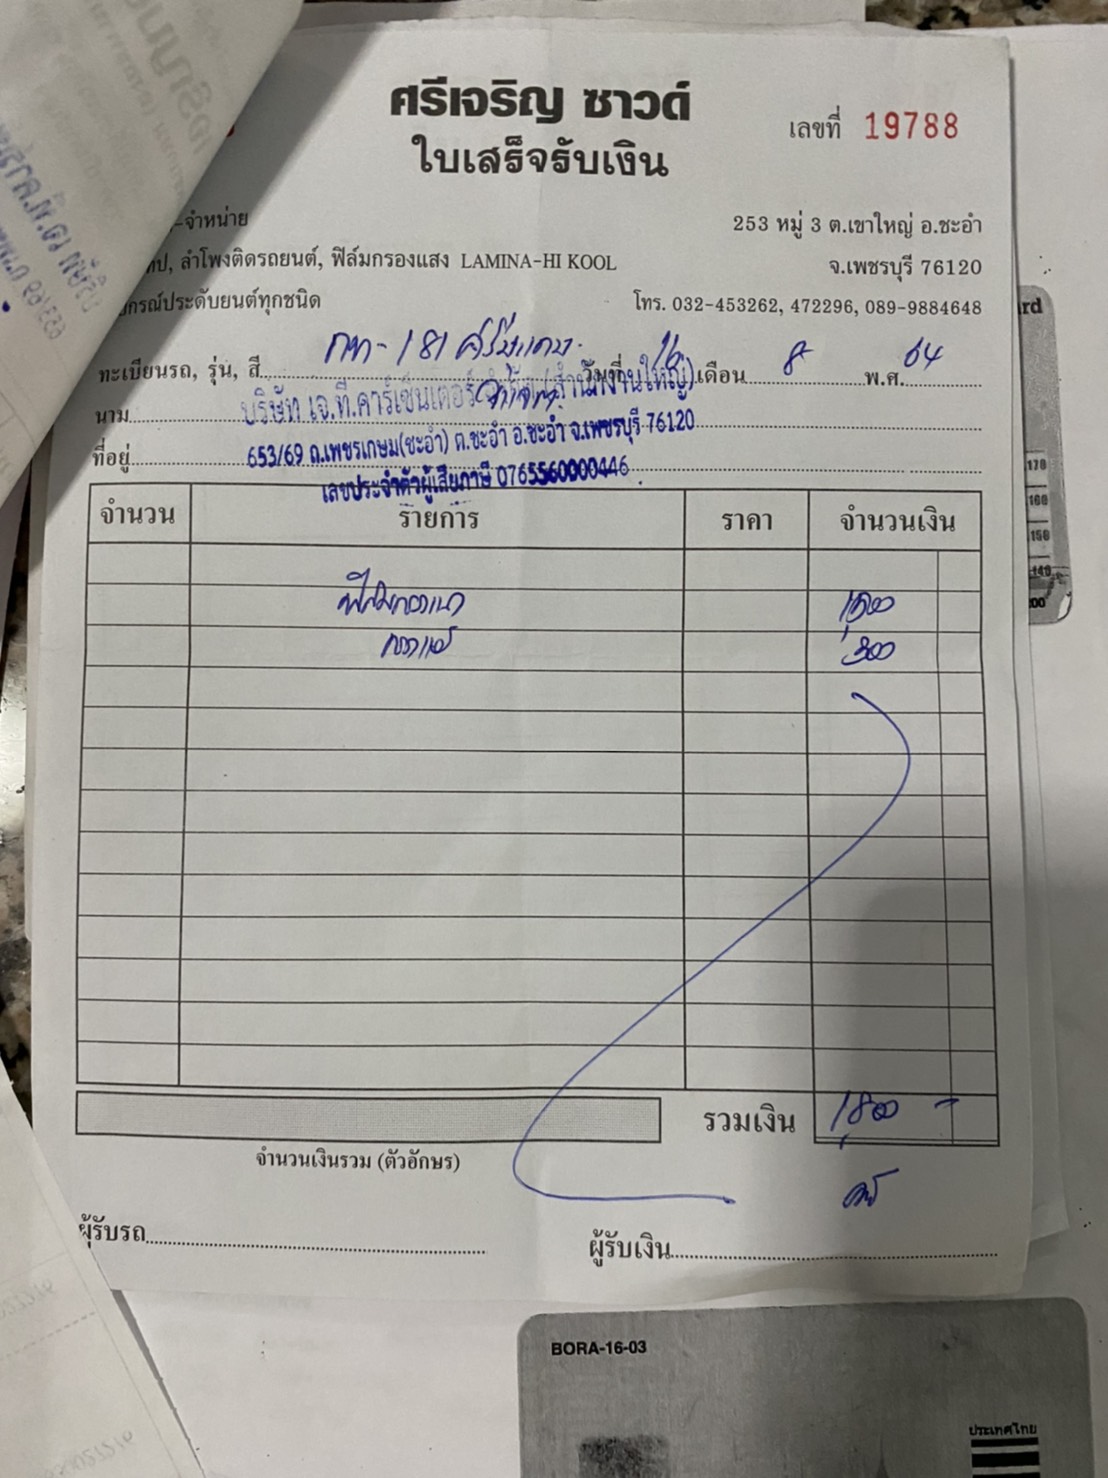 ศรีเจริญ ซาวด์
ใบเสร็จรับเงิน
เลขที่ 19788
-จำหน่าย
253 หมู่ 3 ต.เขาใหญ่ อ.ชะอำ
ทป, ลำโพงติดรถยนต์, ฟิล์มกรองแสง LAMINA-HI KOOL
จ.เพชรบุรี 76120
กรณ์ประดับยนต์ทุกชนิด
โทร. 032-453262, 472296, 089-9884648
ทะเบียนรถ, รุ่น, สี 181 วันที่ 16 เดือน 8 พ.ศ. 64
นาม บริษัท เจ.ที.คาร์เซ็นเตอร์ (สำนักงานใหญ่)
ที่อยู่ 653/69 ถ.เพชรเกษม(ชะอำ) ต.ชะอำ อ.ชะอำ จ.เพชรบุรี 76120
เลขประจำตัวผู้เสียภาษี 0765560000446
จำนวน รายการ ราคา จำนวนเงิน
1,500
300
รวมเงิน 1,800 -
จำนวนเงินรวม (ตัวอักษร)
ผู้รับรถ
ผู้รับเงิน
BORA-16-03
ประเทศไทย
rd
170
160
150
140